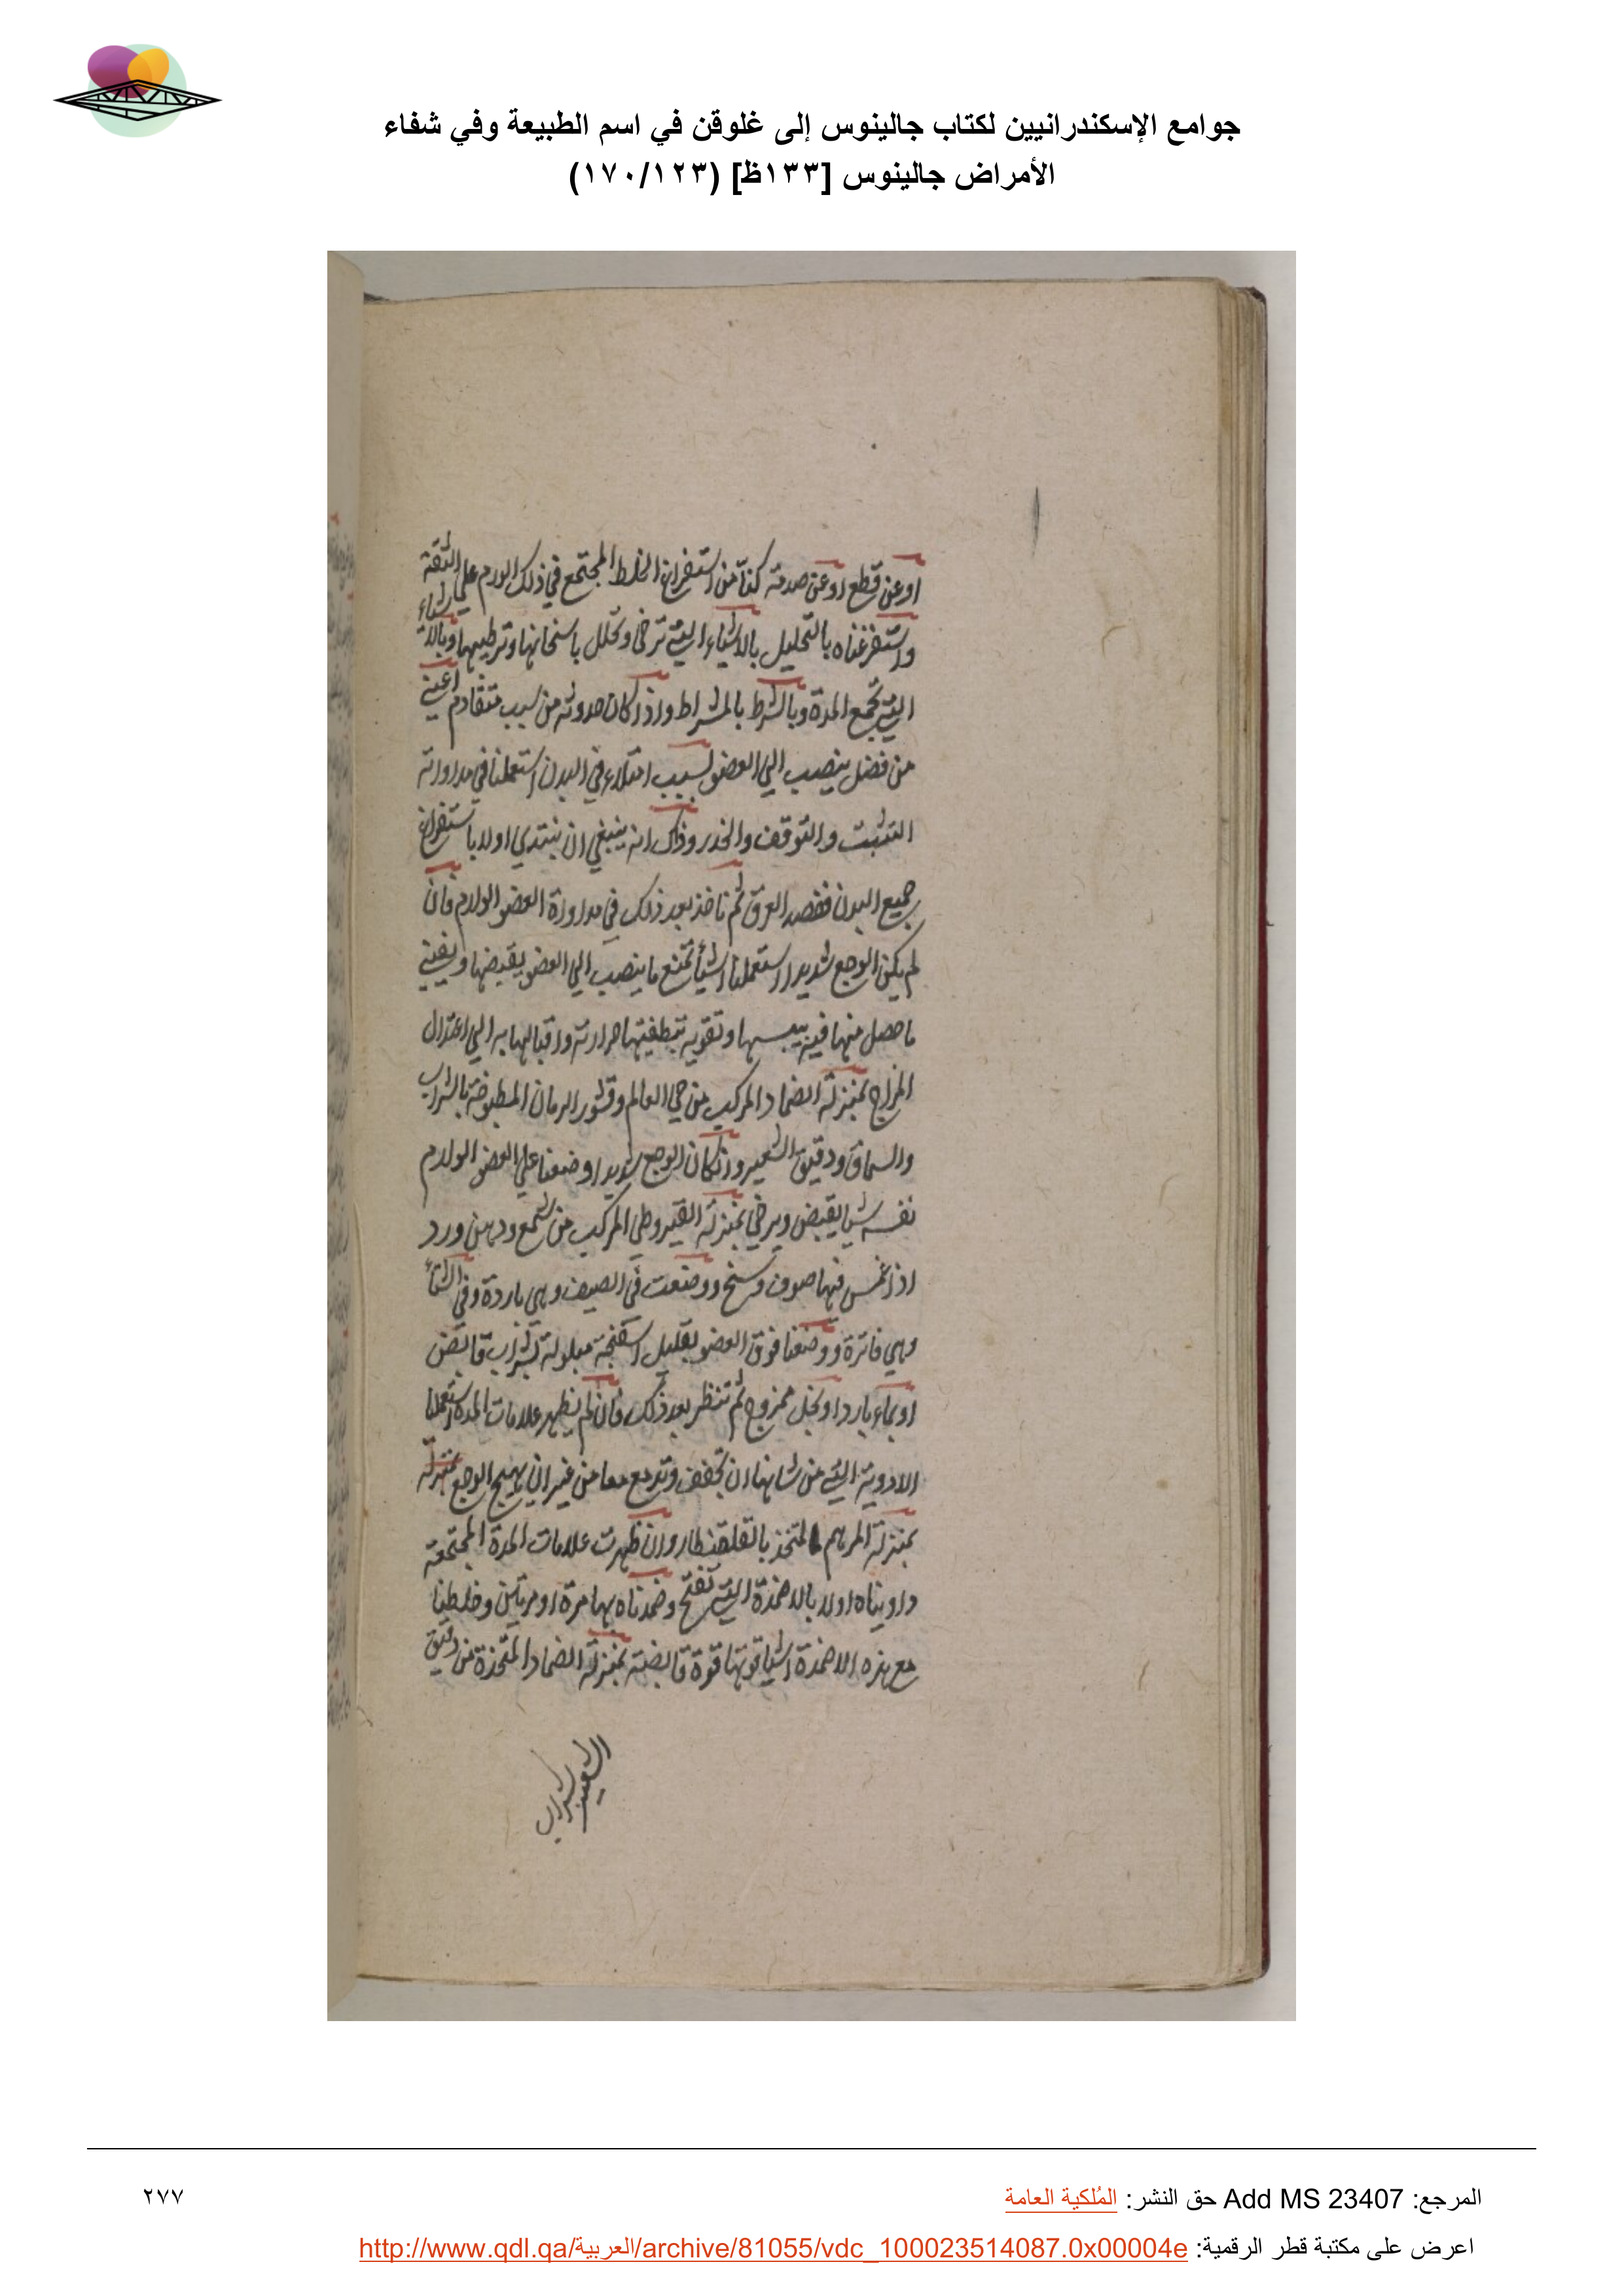 جوامع الإسكندرانيين لكتاب جالينوس إلى غلوقن في اسم الطبيعة وفي شفاء
الأمراض جالينوس [١٣٣ظ] (١٧٠/١٢٣)
او عن قطع او عن صدمة كنا من استفراغ الخلط المجتمع في ذلك الورم علي الثقة
واستفرغناه بالتحليل بالاشياء التي ترخي وتحلل باسخانها وترطيبها وبالاشياء
التي تجمع المدة وبالشرط بالمشراط واذا كان حدوثه من سبب متقادم اعني
من فضل ينصب الي العضو لسبب امتلاء في البدن استعملنا في مداواته
التثبت والتوقف والحذر وذلك انه ينبغي ان نبتدي اولا باستفراغ
جميع البدن ففصد العرق ثم ناخذ بعد ذلك في مداواة العضو الوارم فان
لم يكن الوجع شديدا استعملنا اشيأ تمنع ما ينصب الي العضو بقبضها ويفني
ما حصل منها فيه بيبسها وتقويه بتطفيتها حرارته واقبالها به الي اعتدال
المزاج بمنزلة الضماد المركب من حي العالم وقشور الرمان المطبوخة بالشراب
والسماق ودقيق الشعير وان كان الوجع شديدا وضعنا علي العضو الوارم
نفسه شيا يقبض ويرخي بمنزلة القيروطي المركب من شمع ودهن ورد
اذا غمس فيها صوف وسخ ووضعت في الصيف وهي باردة وفي الشتأ
وهي فاترة ووضعنا فوق العضو بقليل اسفنجة مبلولة بشراب قابض
او بماء بارد او بخل ممزوج ثم تنظر بعد ذلك فان لم يظهر علامات المدة استعملنا
الادوية التي من شانها ان تجفف وتدمع معا من غير ان يهيج الوجع بمنزلة
بمنزلة المرهم المتخذ بالقلقطار وان ظهرت علامات المدة المجتمعة
داويناه اولا بالاضمدة التي تفتح وضمدناه بها مرة او مرتين وخلطنا
مع هذه الاضمدة اشيا قوتها قوة قابضة بمنزلة الضماد المتخذة من دقيق
الشعير بشراب
المرجع: Add MS 23407 حق النشر: المُلكية العامة
٢٧٧
اعرض على مكتبة قطر الرقمية: http://www.qdl.qa/العربية/archive/81055/vdc_100023514087.0x00004e